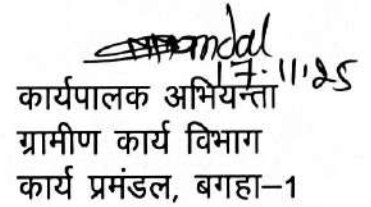 17.11.25
कार्यपालक अभियन्ता
ग्रामीण कार्य विभाग
कार्य प्रमंडल, बगहा–1